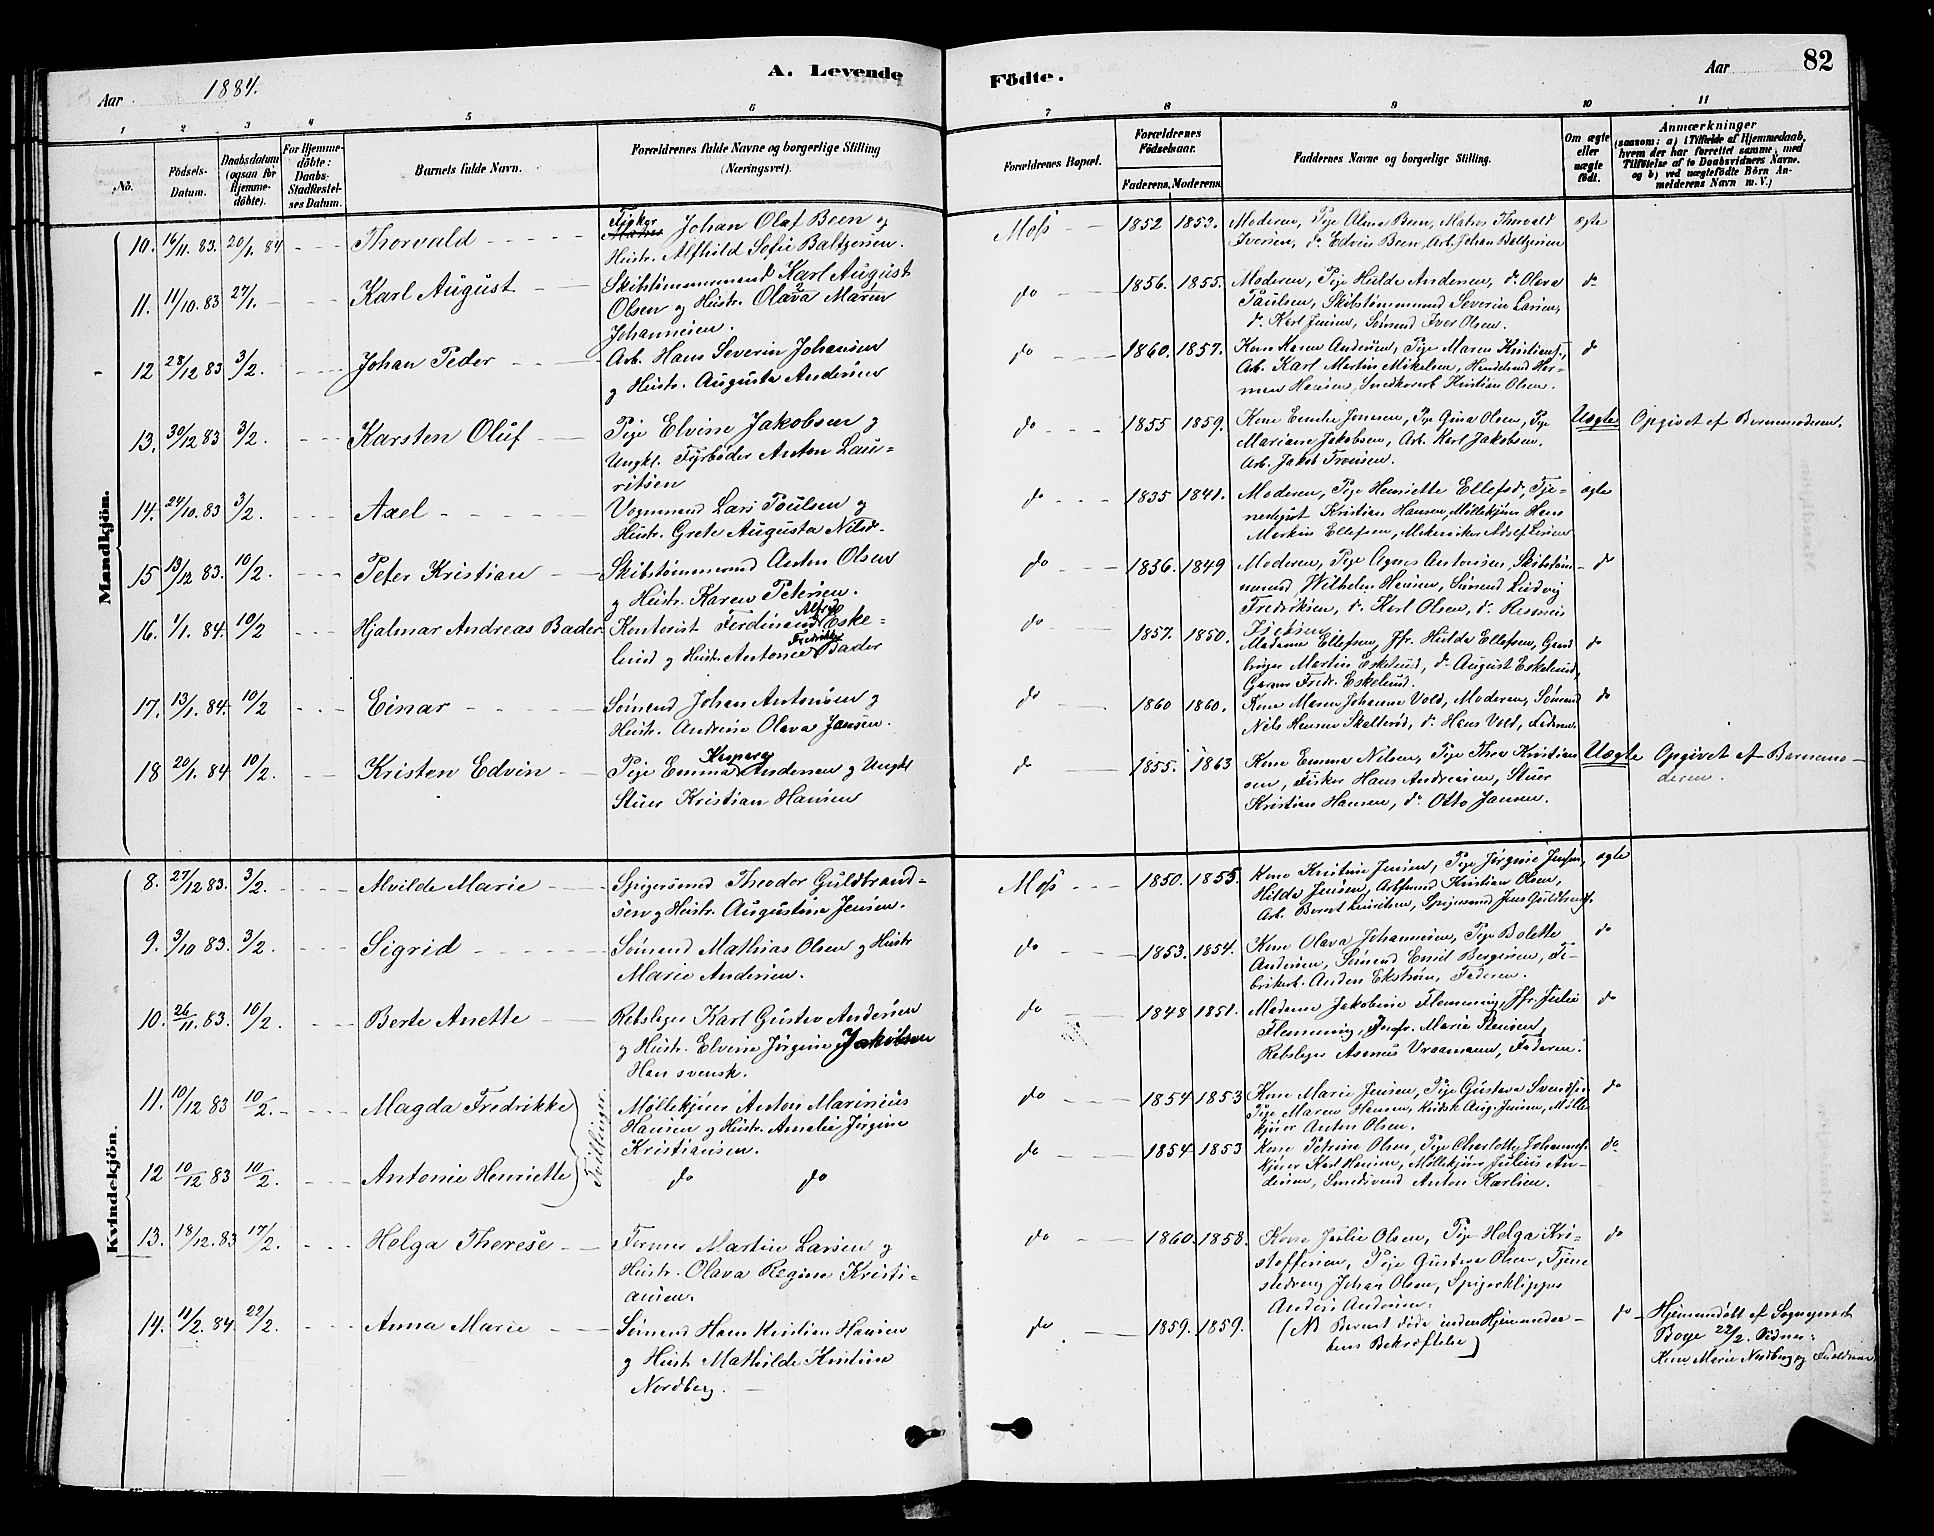 Aar 1884. A. Levende Födte. Aar 82
1 2 3 4 5 6 7 8 9 10 11
No. Födsels-Datum. Daabsdatum (ogsaa for Hjemme-döbte). For Hjemme-döbte: Daabs-Stadfæstel-ses Datum. Barnets fulde Navn. Forældrenes fulde Navne og borgerlige Stilling (Næringsvei). Forældrenes Bopæl. Forældrenes Födselsaar. Faderens. Moderens. Faddernes Navne og borgerlige Stilling. Om ægte eller uægte födt. Anmærkninger (saasom: a) i Tilfælde af Hjemmedaab, hvem der har forrettet samme, med Tilföielse af to Daabsvidners Navne, og b) ved uægtefödte Börn An-melderens Navn m. V.)
Mandkjön.
10. 16/11. 83. 20/1. 84 Thorvald Fisker Johan Olaf Been og
Hustr. Alfhild Sofie Baltzersen. Moss 1852 1853. Moderen, Pige Alma Been, Matros Thorvald
Iversen, do Edvin Been, Arb. Johan Baltzersen ægte
11. 11/10. 83 27/1. Karl August Skibstømmermand Karl August
Olsen og Hustr. Olava Marie
Johannesen. do 1856. 1855. Moderen, Pige Hulda Andersen, do Olava
Paulsen, Skibstømmermand Severin Larsen,
do Karl Jensen, Sømand Iver Olsen. do
12 28/12 83 3/2. Johan Peder Arb. Hans Severin Johansen
og Hustr. Augusta Andersen do 1860. 1857. Kone Karen Andersen, Pige Maren Kristians.,
Arb. Karl Martin Mikelsen, Handelsmd Her-
man Hansen, Snedkerarb Kristian Olsen. do
13. 30/12 83 3/2. Karsten Oluf Pige Elvine Jakobsen og
Ungkl. Fyrbøder Anton Lau-
ritsen do 1855 1859. Kone Emilie Jonesen, Pige Gina Olsen, Pige
Mariane Jakobsen, Arb. Karl Jakobsen,
Arb. Jakob Tronsen. Uægte Opgivet af Barnemoderen.
14. 24/10. 83 3/2. Axel Vognmand Lars Poulsen og
Hustr. Grete Augusta Nilsd. do 1835 1841. Moderen, Pige Henriette Ellefsd, Tje-
nestegut Kristian Hansen, Møllekjører Hans
Markus Ellefsen, Mekaniker Adolf Larsen ægte
15 13/12 83. 10/2. Peter Kristian Skibstømmermd Anton Olsen
og Hustr. Karen Petersen. do 1836. 1849 Moderen, Pige Agnes Antonsen, Skibstøm-
mermd Wilhelm Hansen, Sømand Ludvig
Fredriksen, do Karl Olsen, do Rasmus
do
16. 1/1. 84. 10/2 Hjalmar Andreas Bader Kontorist Ferdinand Alfred Eske-
lund og Hustr. Antonie Fredrikke Bader do 1857. 1850. Madame Ellefsen, Jfr. Hulda Ellefsen,
Martin Eskelund, do August Eskelund,
Garver Fredr. Eskelund. do
17. 13/1. 84. 10/2 Einar Sømand Johan Antonsen og
Hustr. Andrine Olava Jansen. do 1860 1860. Kone Maren Johanne Vold, Moderen, Sømand
Nils Hansen Skallerød, do Hans Vold, Faderen. do
18 20/1. 84 10/2. Kristen Edvin Pige Emma Kaspara Andersen og Ungkl
Stuer Kristian Hansen do 1855. 1863 Kone Emma Nilsen, Pige Thea Kristian-
sen, Fisker Hans Andreasen, Stuer
Kristian Hansen, do Otto Jansen. Uægte Opgivet af Barnemo-
deren.
Kvindekjön.
8. 27/12 83. 3/2. Alvilde Marie Spigersmed Theodor Guldbrand-
sen og Hustr. Augustine Jensen. Moss 1850. 1855. Kone Kristine Jensen, Pige Jørgine Jensen,
Hilda Jensen, Arbmand Kristian Olsen,
Arb. Bernt Lauritsen, Spigersmd Jens Guldbrands. ægte
9. 3/10 83. 3/2. Sigrid Sømand Mathias Olsen og Hustr
Marie Andersen. do 1853. 1854. Kone Olava Johannesen, Pige Bolette
Andersen, Sømand Emil Bergersen, Fa-
brikarb. Anders Ekstrøm, Faderen. do
10. 26/11. 83. 10/2. Berte Anette Rebslager Karl Gustav Andersen
og Hustr. Elvine Jørgine Jakobsen
Han svensk. do 1848 1851. Madame Jakobine Flemming, Jfr. Julie
Flemming, Jomfr. Marie Stensen,
Rebslager Asmus Vraamann, Faderen. do
11. 10/12 83 10/2. Magda Fredrikke Tvillinger Møllekjører Anton Marinius
Hansen og Hustr. Amalie Jørgine
Kristiansen. do 1854 1853 Kone Marie Jensen, Pige Gustava Svendsen,
Pige Maren Hansen, Kudsk Aug. Jensen, Mølle-
kjører Anton Olsen. do
12 10/12 83 10/2. Antonie Henriette do do do 1854 1853 Kone Petrine Olsen, Pige Charlotte Johannes.
kjører Karl Hansen, Møllekjører Julius An-
dersen, Smedsvend Anton Karlsen. do
13. 18/12. 83 17/2. Helga Therese Former Martin Larsen og
Hustr. Olava Regine Kristi-
ansen. do 1860. 1858. Kone Julie Olsen, Pige Helga Kri-
stoffersen, Pige Gustava Olsen, Tjene-
stedreng Johan Olsen, Spigerklipper
Anders Andersen. do
14. 11/2. 84. 22/2. Anna Marie Sømand Hans Kristian Hansen
og Hustr Mathilde Kristine
Nordberg. do 1859. 1859. (NB Barnet døde inden Hjemmedaa-
bens Bekræftelse) do Hjemmedøbt af Sogneprest
Boye 22/2. Vidner:
Kone Marie Nordberg og Faderen